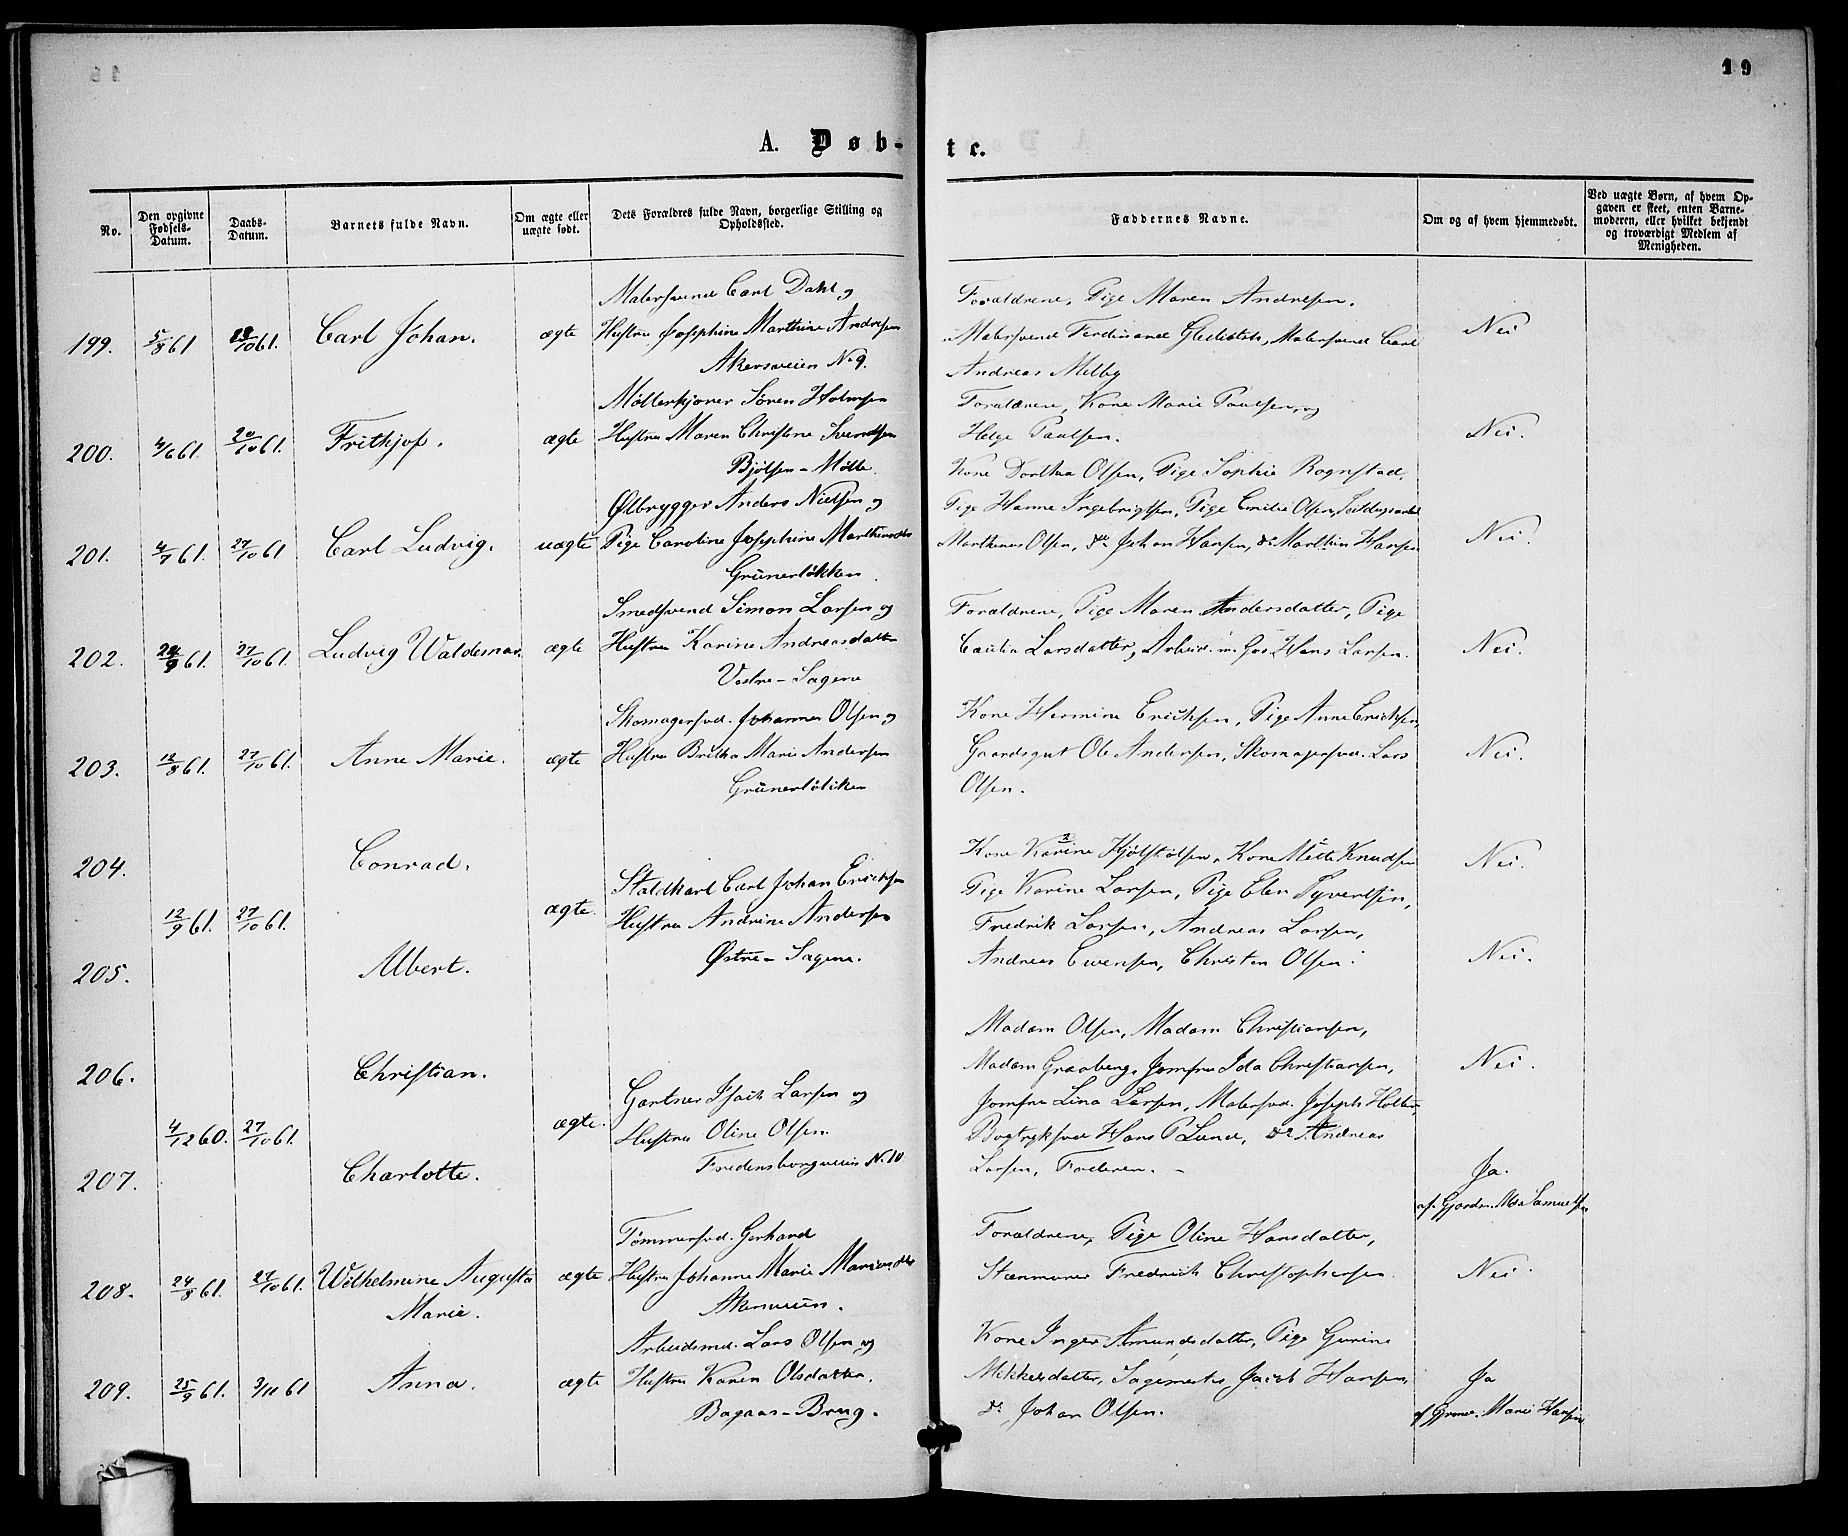 19
A. Døb-
te.
No.
Den opgivne Fødsels-Datum.
Daabs-Datum.
Barnets fulde Navn.
Om ægte eller uægte født.
Dets Forældres fulde Navn, borgerlige Stilling og Opholdssted.
Faddernes Navne.
Om og af hvem hjemmedøbt.
Ved uægte Børn, af hvem Op-
gaven er skeet, enten Barne-
moderen, eller hvilket bekjendt
og troværdigt Medlem af
Menigheden.
Malersvend Carl Dahl og
199. 5/8 61. 13/10 61. Carl Johan. ægte Hustru Josephine Marthine Andresen
Akersveien No 9.
Forældrene, Pige Maren Andresen,
Malersvend Ferdinand Gleditsch, Malersvend Carl
Andreas Melby
Nei
Møllerkjører Søren Holmsen
200. 4/6 61. 20/10 61. Frithjof. ægte Hustru Maren Christine Svendsen
Bjölsen-Mølle.
Forældrene, Kone Marie Paulsen, og
Helge Paulsen.
Nei.
Ølbrygger Anders Nielsen og
201. 4/7 61. 27/10 61 Carl Ludvig. uægte Pige Caroline Josephine Marthinsdtr
Grünerløkken.
Kone Dorthea Olsen, Pige Sophie Rognstad,
Pige Hanne Ingebrigtsen, Pige Emilie Olsen,
Marthinus Olsen, do Johan Hansen, do Marthin Hansen
Nei.
Smedsvend Simon Larsen og
202. 24/9 61. 27/10 61. Ludvig Waldemar. ægte Hustru Karine Andreasdatter
Vestre-Sagene
Forældrene, Pige Maren Andersdatter, Pige
Cecilia Larsdatter, Hans Larsen.
Nei.
Skomagersvd. Johannes Olsen og
203. 12/8 61. 27/10 61. Anne Marie. ægte Hustru Britha Marie Andersen
Grünerløkken
Kone Hermine Erichsen, Pige Anne Erichsen,
Gaardsgut Ole Andersen, Skomagersvd. Lars
Olsen.
Nei.
204. Conrad.
Staldkarl Carl Johan Erichsen
12/9 61. 27/10 61. ægte. Hustru Andrine Andersen
Østre-Sagene.
205. Albert.
Kone Karine Kjølstølsen, Kone Mette Knudsen
Pige Karine Larsen, Pige Elen Syvertsen,
Fredrik Larsen, Andreas Larsen,
Andreas Evensen, Christen Olsen.
Nei.
Nei.
206. Christian.
Gartner Isach Larsen og
4/12 60. 27/10 61. ægte. Hustru Oline Olsen.
Fredensborgveien No 10
207. Charlotte.
Madam Olsen, Madam Christiansen,
Madam Graaberg, Jomfru Ida Christiansen,
Jomfru Lina Larsen, Malersvd. Joseph Holter
Bogtryksvd Hans P Lund, do Andreas
Larsen, Faderen.
Nei.
Ja.
af Gjordm. Samuelsen
Tømmersvd. Gerhard
208. 24/8 61. 27/10 61. Wilhelmine Augusta ægte Hustru Johanne Marie
Marie. Akersveien.
Forældrene, Pige Oline Hansdatter,
Stenmurer Fredrich Christophersen.
Nei.
Arbeidsmd. Lars Olsen og
209. 25/9 61. 3/11 61 Anna. ægte Hustru Karen Olsdatter.
Bagaas-Brug.
Kone Inger Amundsdatter, Pige Gurine
Mikkelsdatter, Sagmester Jacob Hansen,
do Johan Olsen.
Ja
af Marie Hansen